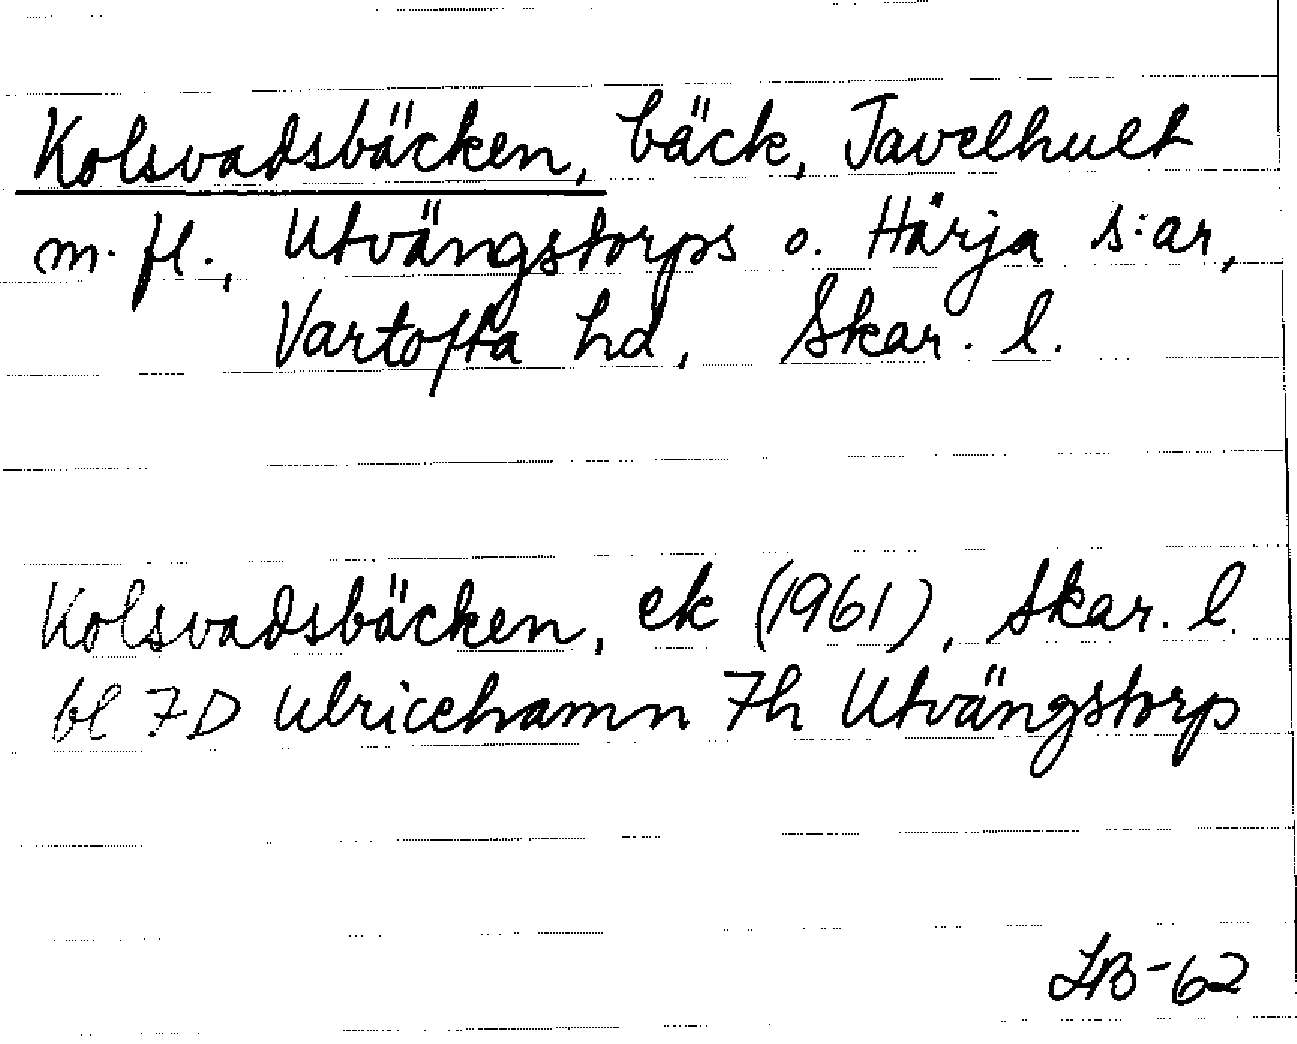 Kolsvadsbäcken, bäck, Javelhult
m.fl., Utvängstorps o. Hårja s:ar,
Vartofta hd, Skar. l.
Kolsvadsbäcken, ek (1961), Skar. l.
bl 7D Ulricehamn 7h Utvängstorp
LB-62